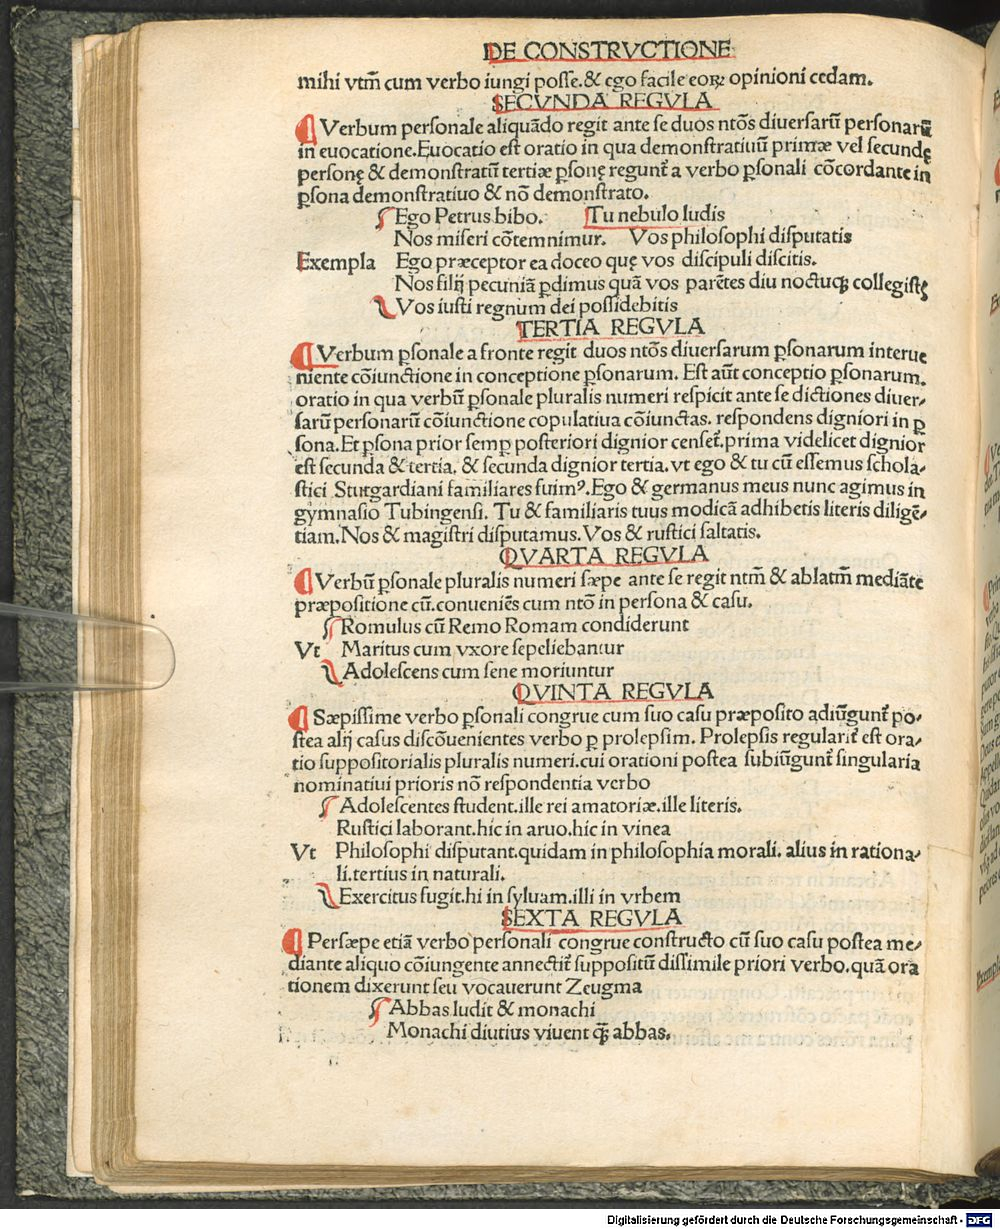 DE CONSTRVCTIONE
mihi vtm̄ cum verbo iungi posse.& ego facile eoꝝ opinioni cedam.
SECVNDA REGVLA
Verbum personale aliquādo regit ante se duos ntōs diuersarū personarū
in euocatione.Euocatio est oratio in qua demonstratiuū primæ vel secundę
personę & demonstratū tertiæ ꝑsonę regunt᷑ a verbo ꝑsonali cōcordante in
ꝑsona demonstratiuo & nō demonstrato.
Ego Petrus bibo. Tu nebulo ludis
Nos miseri cōtemnimur. Vos philosophi disputatis
Exempla Ego præceptor ea doceo quę vos discipuli discitis.
Nos filij pecuniā ꝑdimus quā vos parētes diu noctuqꝫ collegistꝭ
Vos iusti regnum dei possidebitis
TERTIA REGVLA
Verbum ꝑsonale a fronte regit duos ntōs diuersarum ꝑsonarum interue
niente cōiunctione in conceptione ꝑsonarum. Est aūt conceptio ꝑsonarum.
oratio in qua verbū ꝑsonale pluralis numeri respicit ante se dictiones diuer-
sarū personarū cōiunctione copulatiua cōiunctas. respondens digniori in ꝑ
sona.Et ꝑsona prior semꝑ posteriori dignior censet᷑.prima videlicet dignior
est secunda & tertia. & secunda dignior tertia. vt ego & tu cū essemus schola-
stici Stutgardiani familiares fuimꝰ.Ego & germanus meus nunc agimus in
gymnasio Tubingensi. Tu & familiaris tuus modicā adhibetis literis diligē-
tiam.Nos & magistri disputamus.Vos & rustici saltatis.
QVARTA REGVLA
Verbū ꝑsonale pluralis numeri sæpe ante se regit ntm̄ & ablatm̄ mediāte
præpositione cū.conueniēs cum ntō in persona & casu.
Romulus cū Remo Romam condiderunt
Vt Maritus cum vxore sepeliebantur
Adolescens cum sene moriuntur
QVINTA REGVLA
Sæpissime verbo ꝑsonali congrue cum suo casu præposito adiūgunt᷑ po-
stea alij casus discōuenientes verbo ꝑ prolepsim. Prolepsis regularit᷑ est ora-
tio suppositorialis pluralis numeri.cui orationi postea subiūgunt᷑ singularia
nominatiui prioris nō respondentia verbo
Adolescentes student.ille rei amatoriæ.ille literis.
Rustici laborant.hic in aruo.hic in vinea
Vt Philosophi disputant.quidam in philosophia morali. alius in rationa-
li.tertius in naturali.
Exercitus fugit.hi in syluam.illi in vrbem
SEXTA REGVLA
Persæpe etiā verbo personali congrue constructo cū suo casu postea me-
diante aliquo cōiungente annectit᷑ suppositū dissimile priori verbo.quā ora
tionem dixerunt seu vocauerunt Zeugma
Abbas ludit & monachi
Monachi diutius viuent qꝫ̄ abbas.
Digitalisierung gefördert durch die Deutsche Forschungsgemeinschaft - DFG